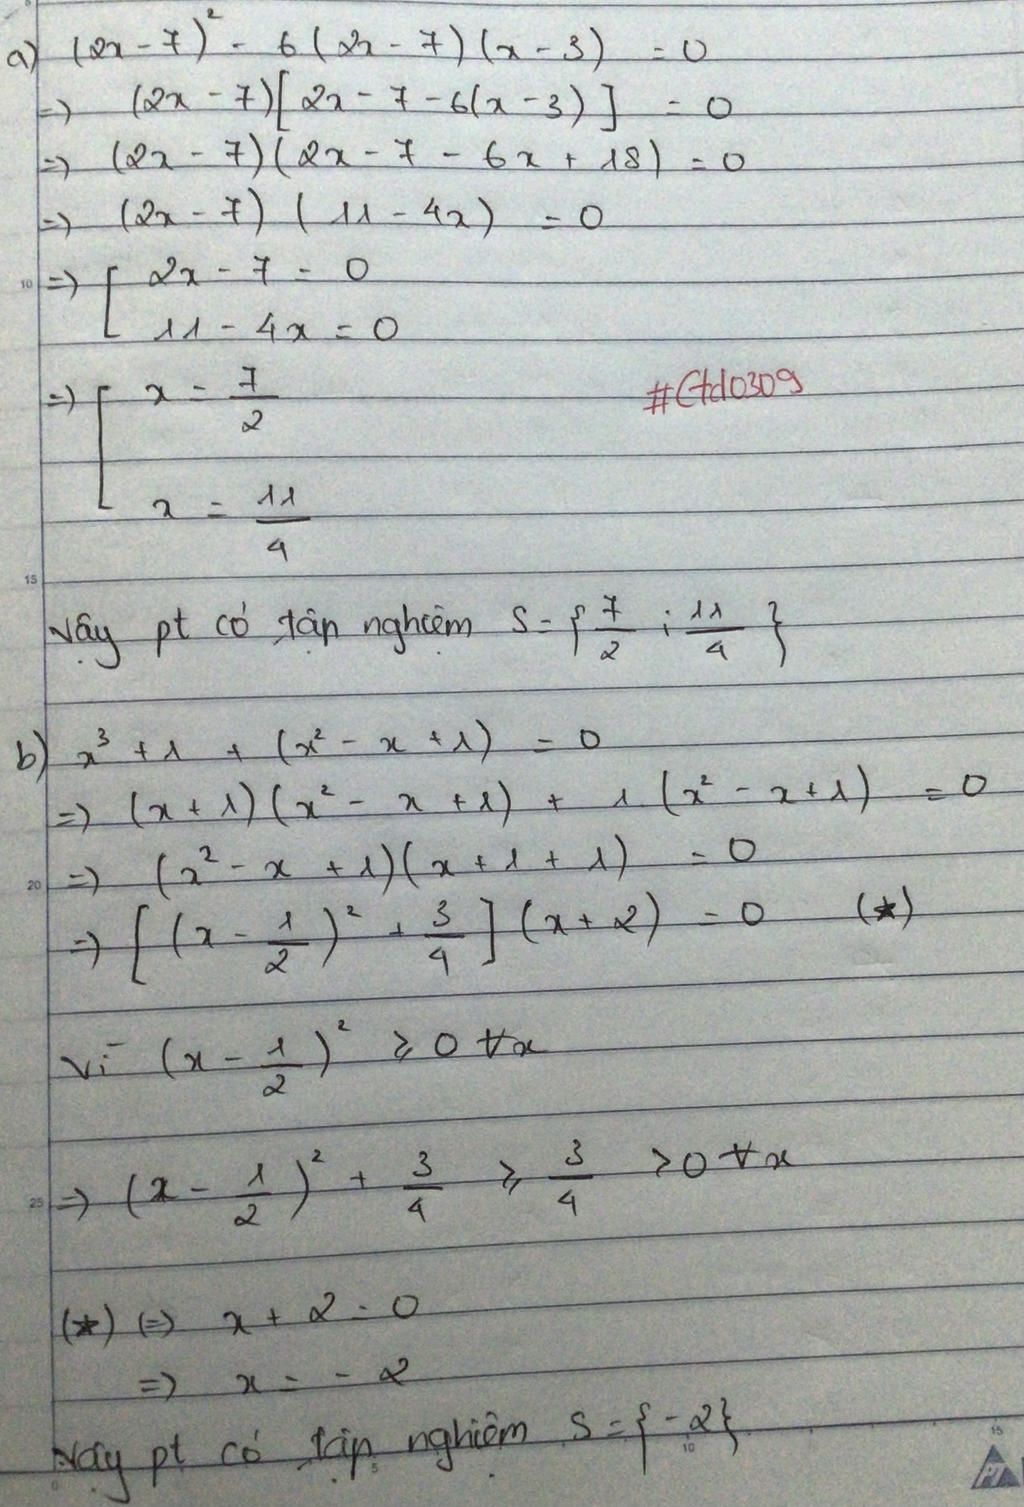 a) (2x - 7)² - 6(2x - 7)(x - 3) = 0
=> (2x - 7)[2x - 7 - 6(x - 3)] = 0
=> (2x - 7)(2x - 7 - 6x + 18) = 0
=> (2x - 7) (11 - 4x) = 0
10 => [ 2x - 7 = 0
11 - 4x = 0
=> [ x = 7/2
#Gtd0309
x = 11/4
15
Vậy pt có tập nghiệm S = {7/2 ; 11/4}
b) x³ + 1 + (x² - x + 1) = 0
=> (x + 1)(x² - x + 1) + 1 (x² - x + 1) = 0
20 => (x² - x + 1)(x + 1 + 1) = 0
=> [(x - 1/2)² + 3/4](x + 2) = 0 (*)
Vì (x - 1/2)² ⩾ 0 ∀x
25 => (x - 1/2)² + 3/4 ⩾ 3/4 > 0 ∀x
(*) (=> x + 2 = 0
=> x = - 2
Vậy pt có tập nghiệm S = {-2}
5 10 15
PT